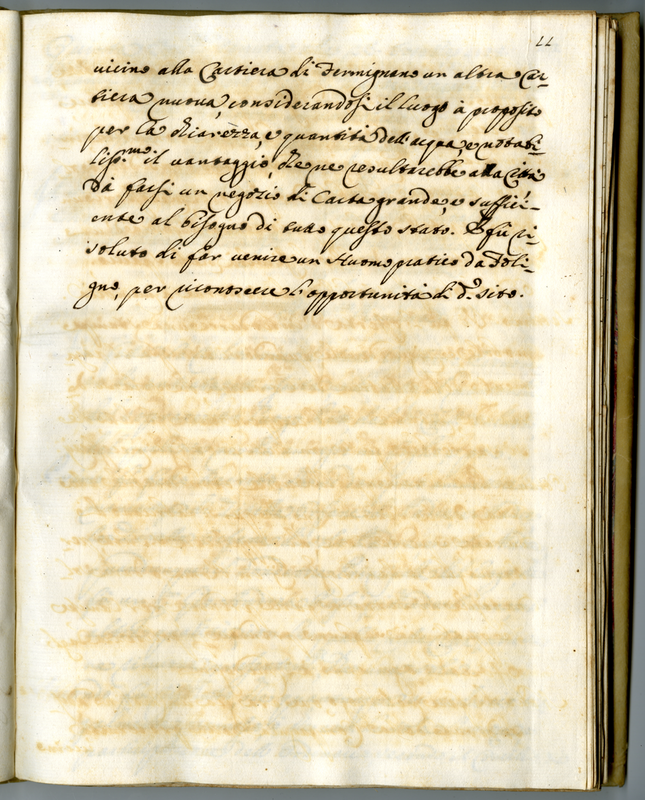 22
vicino alla Cartiera di Fermignano un altra Car-
tiera nuova, considerandosi il luogo à proposito
per la chiarezza, e quantità dell'acqua, e notabi-
liss.mo il vantaggio, che ne resultarebbe alla Città
dà farsi un negozio di Carta grande, e suffici-
ente al bisogno di tutto questo stato. E fù ri-
soluto di far venire un Huomo pratico da Foli-
gno, per riconoscere l'opportunità di d.o sito.